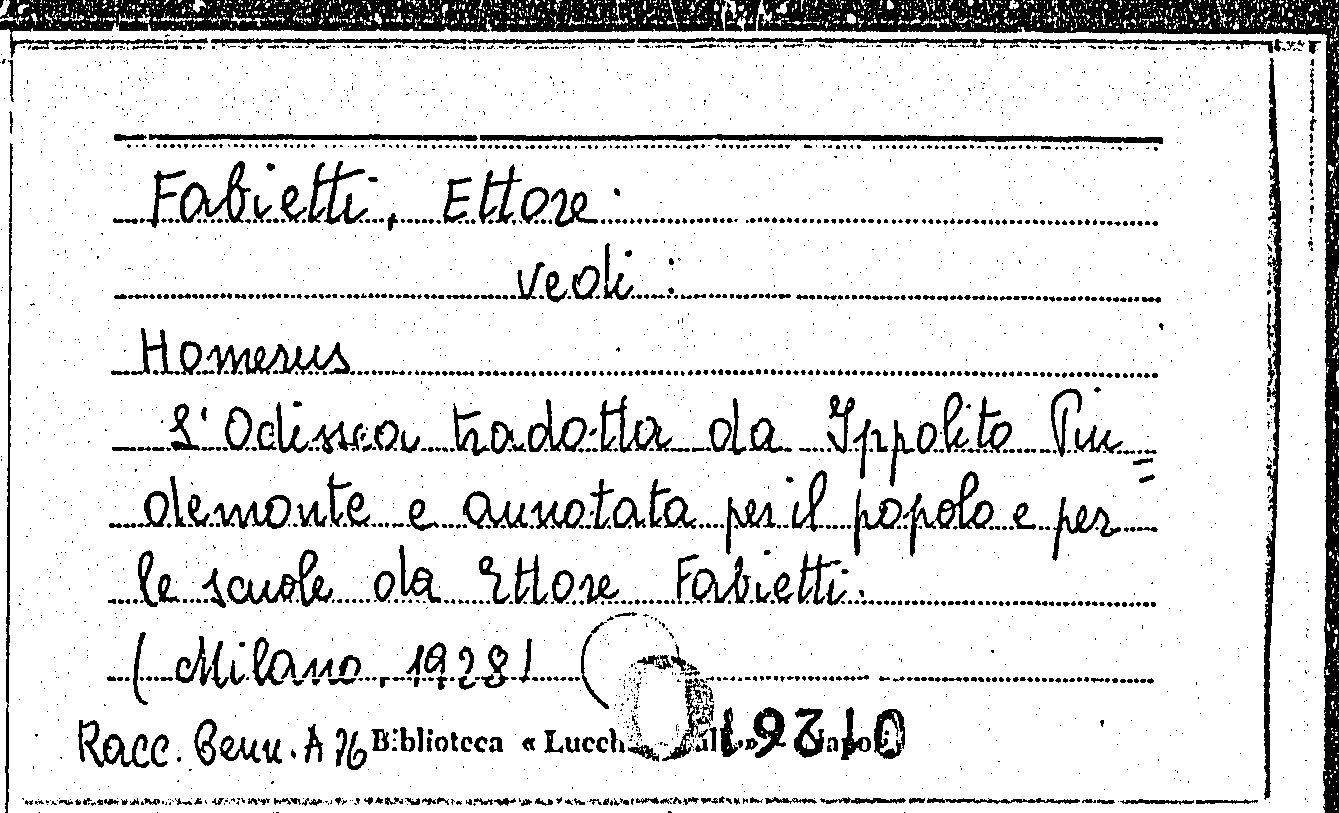 Fabietti, Ettore
vedi :
Homerus
L'Odissea tradotta da Ippolito Pin=
demonte e annotata per il popolo e per
le scuole da Ettore Fabietti.
(Milano, 1928)
Racc. Benn. A 76 Biblioteca « Lucch